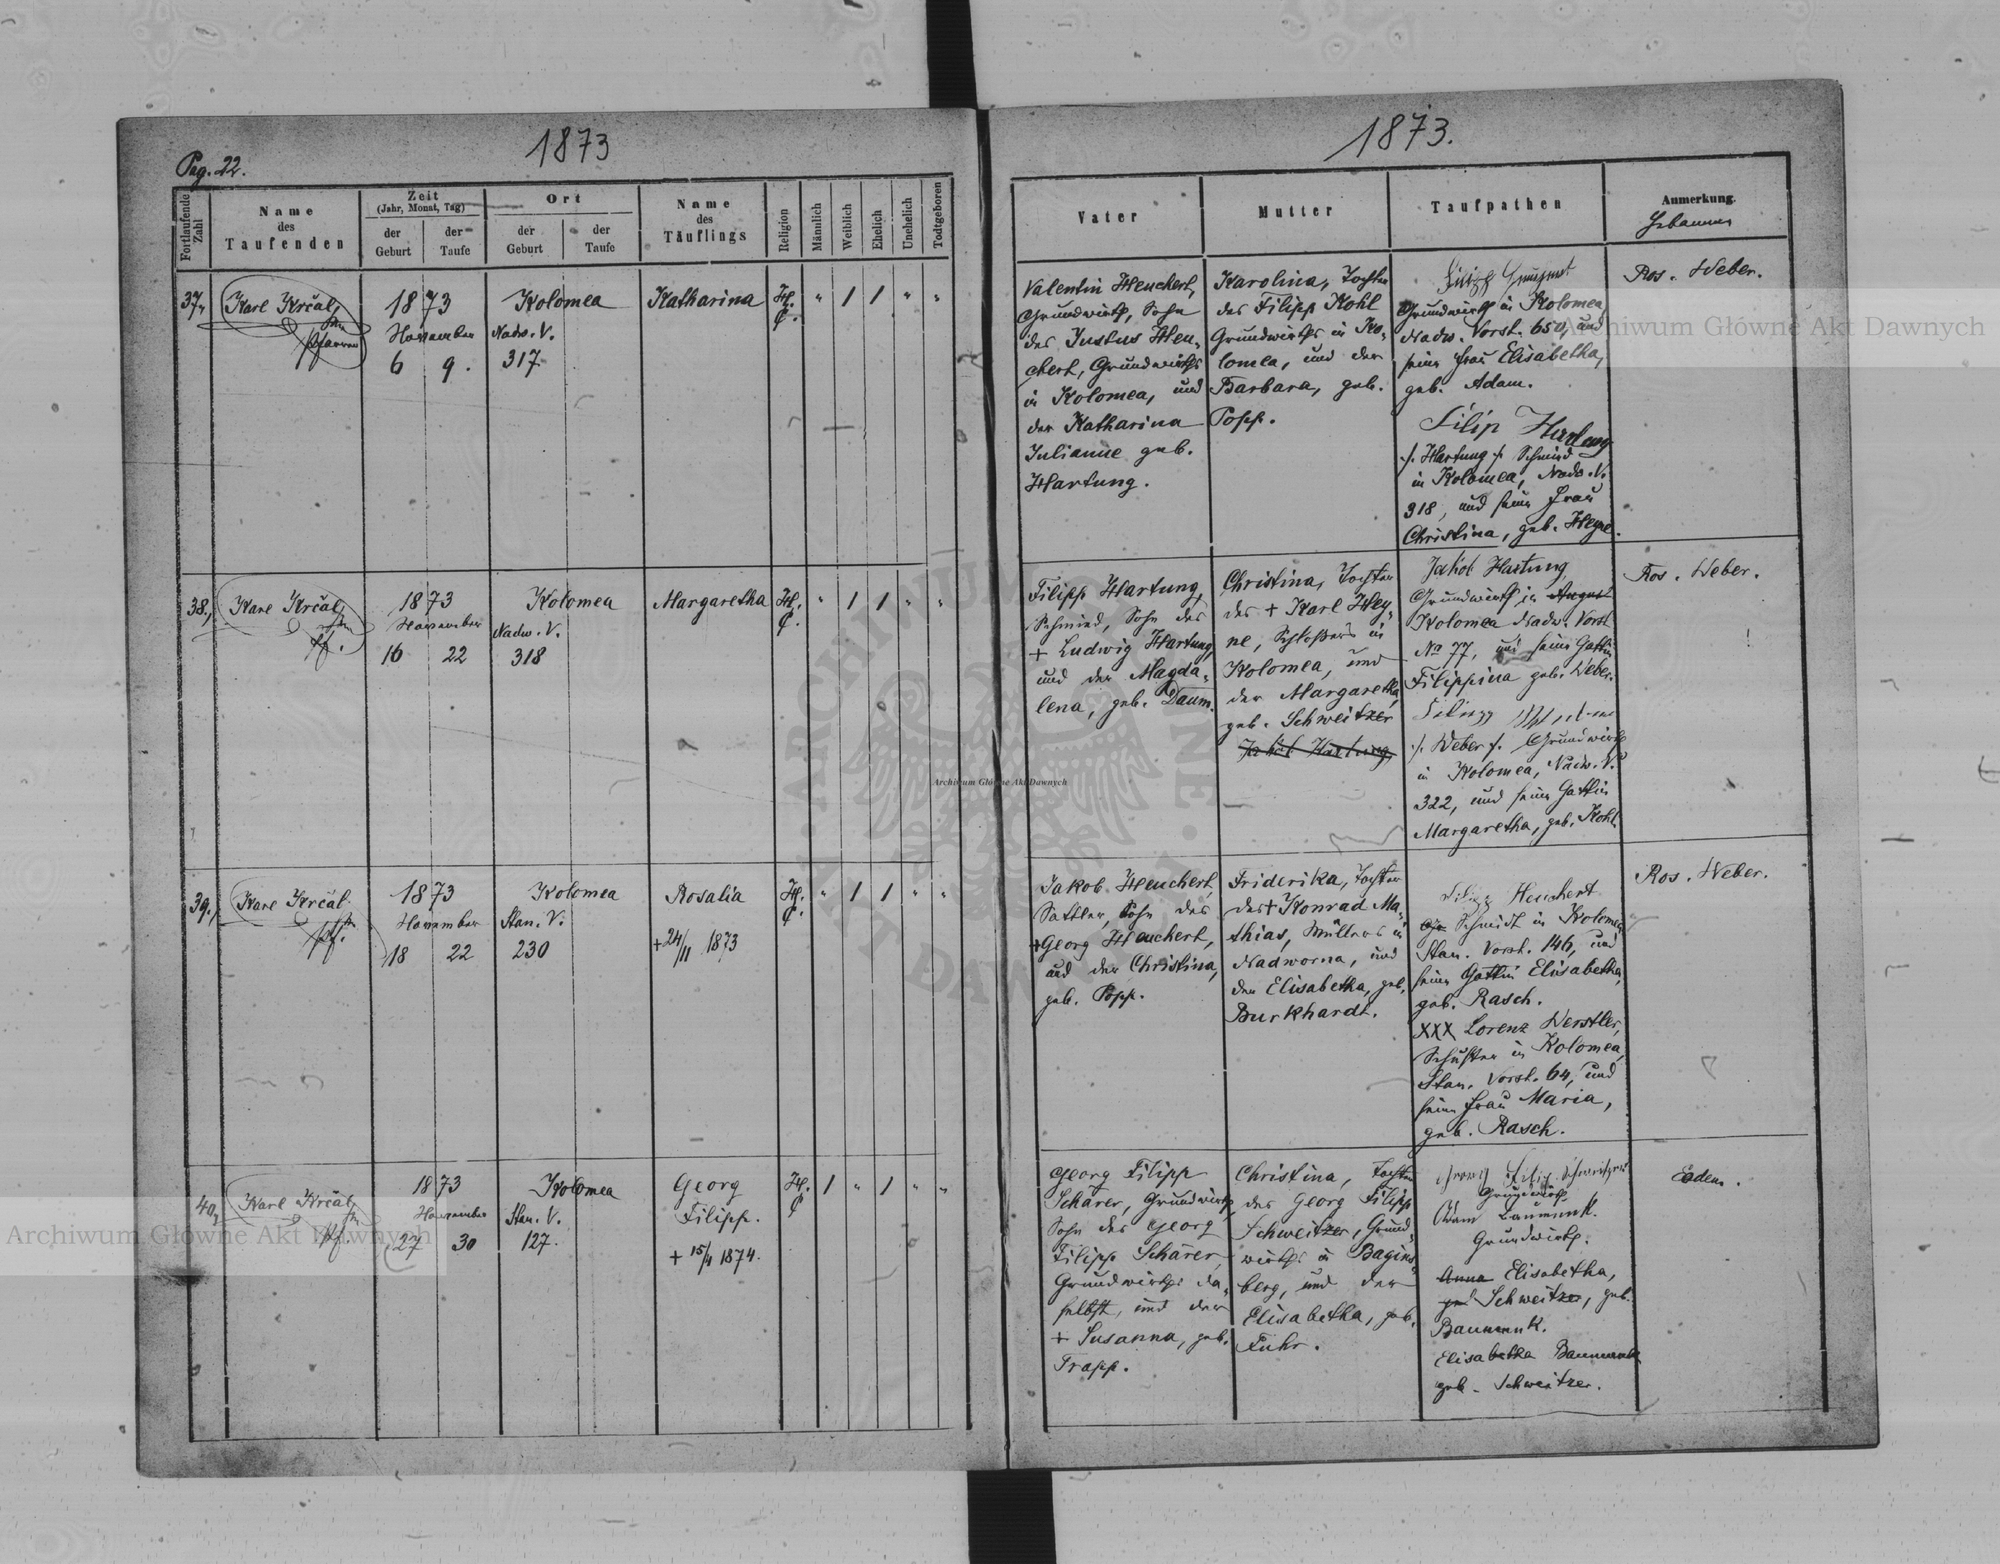 1873
Pag. 22.
Fortlaufende Zahl
Name
des
Taufenden
Zeit
(Jahr, Monat, Tag)
der Geburt
der Taufe
Ort
der Geburt
der Taufe
Name
des
Täuflings
Religion
Männlich
Weiblich
Ehelich
Unehelich
Todtgeboren
37,
Karl Krčal
Pfarrer
1873
November
6 9.
Kolomea
Nadw. V.
317
Katharina
H. C.
" / / " "
38,
Karl Krčal
Pf.
1873
November
16 22
Kolomea
Nadw. V.
318
Margaretha
H. C.
" / / " "
39,
Karl Krčal
Pf.
1873
November
18 22
Kolomea
Stan. V.
230
Rosalia
+ 24/11 1873
H. C.
" / / " "
40,
Karl Krčal
Pf.
1873
November
27 30
Kolomea
Stan. V.
127.
Georg
Filipp.
+ 15/4 1874.
H. C.
/ " / " "
1873.
Vater
Mutter
Taufpathen
Anmerkung.
Hebamme
Valentin Heuchert,
Grundwirth, Sohn
des Justus Heu-
chert, Grundwirths
in Kolomea, und
der Katharina
Julianne geb.
Hartung.
Karolina, Tochter
des Filipp Kohl
Grundwirths in Ko-
lomea, und der
Barbara, geb.
Popp.
Grundwirth in Kolomea
Nadw. Vorst. 650, und
seine Frau Elisabetha,
geb. Adam.
Filip Hartung
./. Hartung ./. Schmied
in Kolomea, Nadw. V.
318, und seine Frau
Christina, geb. Heyne.
Ros. Weber.
Filipp Hartung,
Schmied, Sohn des
+ Ludwig Hartung,
und der Magda-
lena, geb. Daum.
Christina, Tochter
des + Karl Hey-
ne, Schloßers in
Kolomea, und
der Margaretha,
geb. Schweitzer
Jakob Hartung
Jakob Hartung,
Grundwirth in August
Kolomea Nadw. Vorst
No 77, und seine Gattin
Filippina geb. Weber.
./. Weber ./. Grundwirth
in Kolomea, Nadw. V.
322, und seine Gattin
Margaretha, geb. Kohl.
Ros. Weber.
Jakob Heuchert,
Sattler, Sohn des
+ Georg Heuchert,
und der Christina,
geb. Popp.
Friderika, Tochter
des + Konrad Ma-
thias, Müllers in
Nadworna, und
der Elisabetha, geb.
Burkhardt.
Filipp Heuchert
Schmidt in Kolomea
Stan. Vorst. 146, und
seine Gattin Elisabetha,
geb. Rasch.
XXX Lorenz Werstler,
Schuster in Kolomea,
Stan. Vorst. 64, und
seine Frau Maria,
geb. Rasch.
Ros. Weber.
Georg Filipp
Schärer, Grundwirth,
Sohn des Georg
Filipp Schärer,
Grundwirths da-
selbst, und der
+ Susanna, geb.
Trapp.
Christina, Tochter
des Georg Filipp
Schweitzer, Grund-
wirths in Bagins-
berg, und der
Elisabetha, geb.
Fuhr.
Grundwirth
Adam Baumunk.
Grundwirth.
Anna Elisabetha,
Schweitzer, geb.
Baumunk.
Elisabetha Baumunk
geb. Schweitzer.
Eadem.
Archiwum Główne Akt Dawnych
Archiwum Główne Akt Dawnych
Archiwum Główne Akt Dawnych